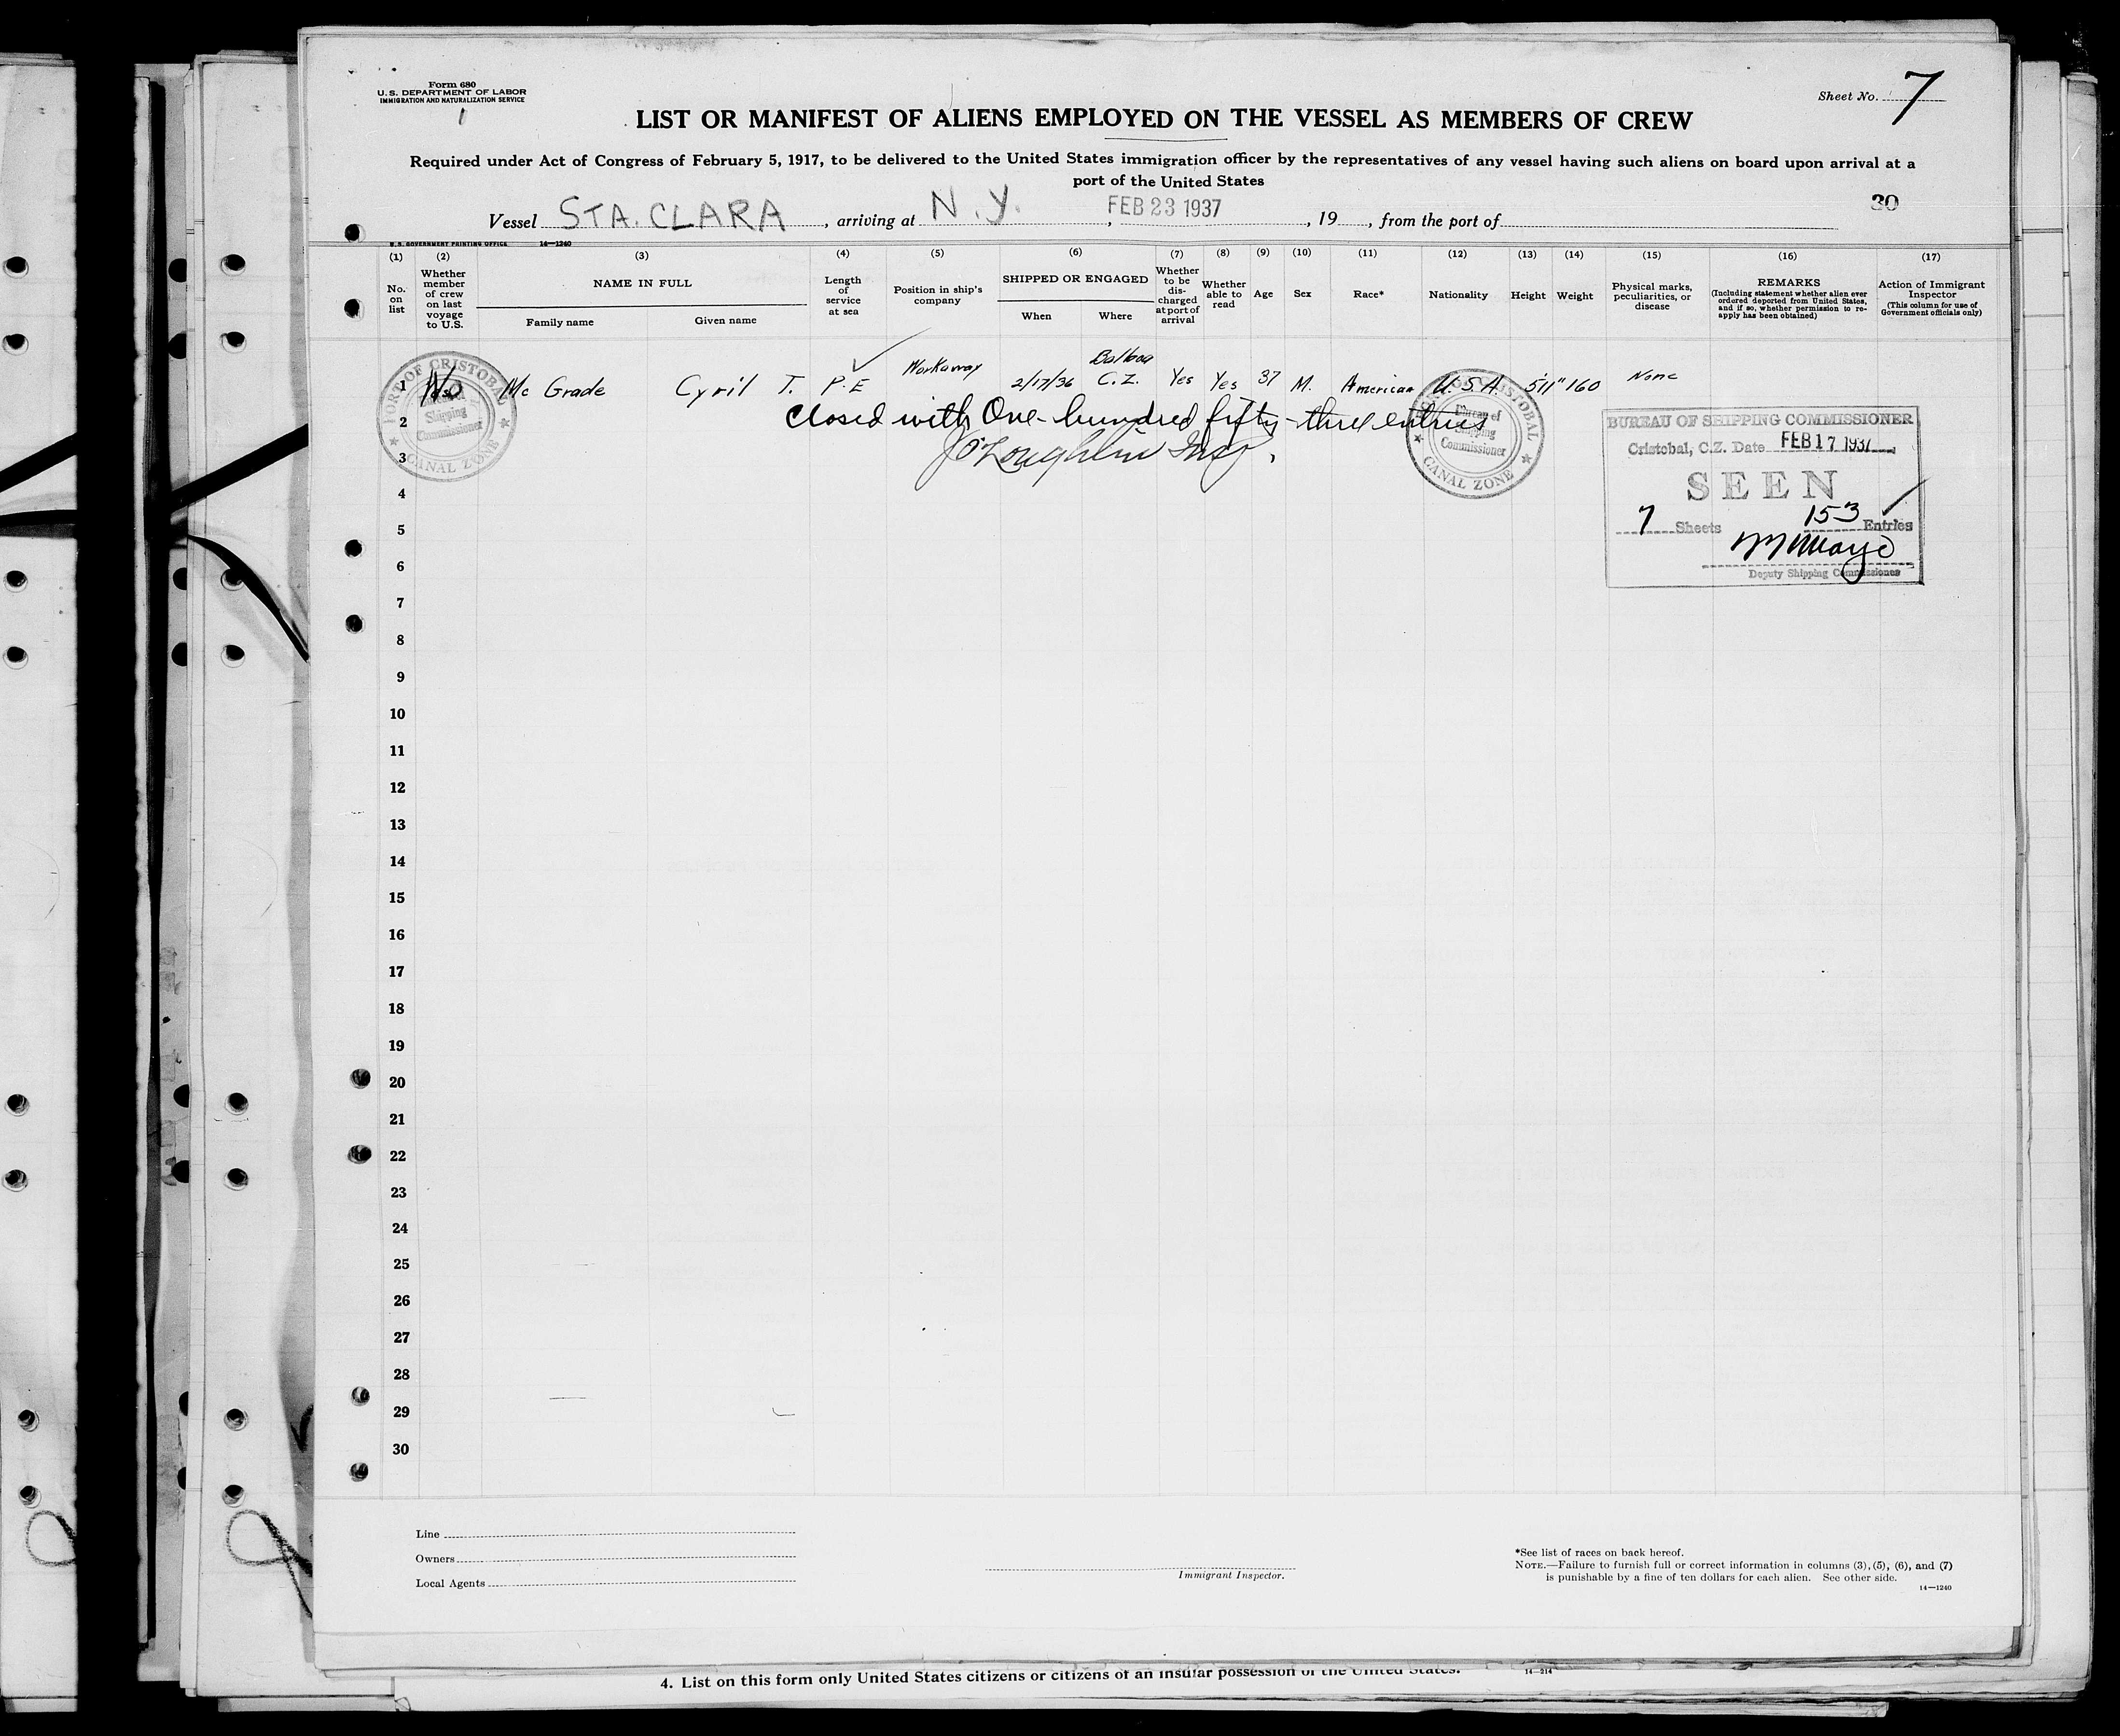 Form 680
U.S. DEPARTMENT OF LABOR
IMMIGRATION AND NATURALIZATION SERVICE
1
Sheet No. 7
LIST OR MANIFEST OF ALIENS EMPLOYED ON THE VESSEL AS MEMBERS OF CREW
Required under Act of Congress of February 5, 1917, to be delivered to the United States immigration officer by the representatives of any vessel having such aliens on board upon arrival at a
port of the United States
30
Vessel STA. CLARA, arriving at N.Y., FEB 23 1937, 19, from the port of
U.S. GOVERNMENT PRINTING OFFICE 14—1240
(1) (2) (3) (4) (5) (6) (7) (8) (9) (10) (11) (12) (13) (14) (15) (16) (17)
No. on list
Whether member of crew on last voyage to U.S.
NAME IN FULL
Family name
Given name
Length of service at sea
Position in ship's company
SHIPPED OR ENGAGED
When
Where
Whether to be discharged at port of arrival
Whether able to read
Age
Sex
Race*
Nationality
Height
Weight
Physical marks, peculiarities, or disease
REMARKS
(Including statement whether alien ever ordered deported from United States, and if so, whether permission to re-apply has been obtained)
Action of Immigrant Inspector
(This column for use of Government officials only)
1 No Mc Grade Cyril T. P.E Workaway 2/17/36 Balboa C.Z. Yes Yes 37 M. American U.S.A. 5'11" 160 None
2 Closed with One-hundred fifty-three entries
3 J O'Loughlin Insp.
PORT OF CRISTOBAL
Bureau of
Shipping
Commissioner
CANAL ZONE
PORT OF CRISTOBAL
Bureau of
Shipping
Commissioner
CANAL ZONE
BUREAU OF SHIPPING COMMISSIONER
Cristobal, C.Z. Date FEB 17 1937
SEEN
7 Sheets 153 Entries
Deputy Shipping Commissioner
4
5
6
7
8
9
10
11
12
13
14
15
16
17
18
19
20
21
22
23
24
25
26
27
28
29
30
Line
Owners
Local Agents
Immigrant Inspector.
*See list of races on back hereof.
NOTE.—Failure to furnish full or correct information in columns (3), (5), (6), and (7)
is punishable by a fine of ten dollars for each alien. See other side.
14—1240
4. List on this form only United States citizens or citizens of an insular possession of the United States.
14—214